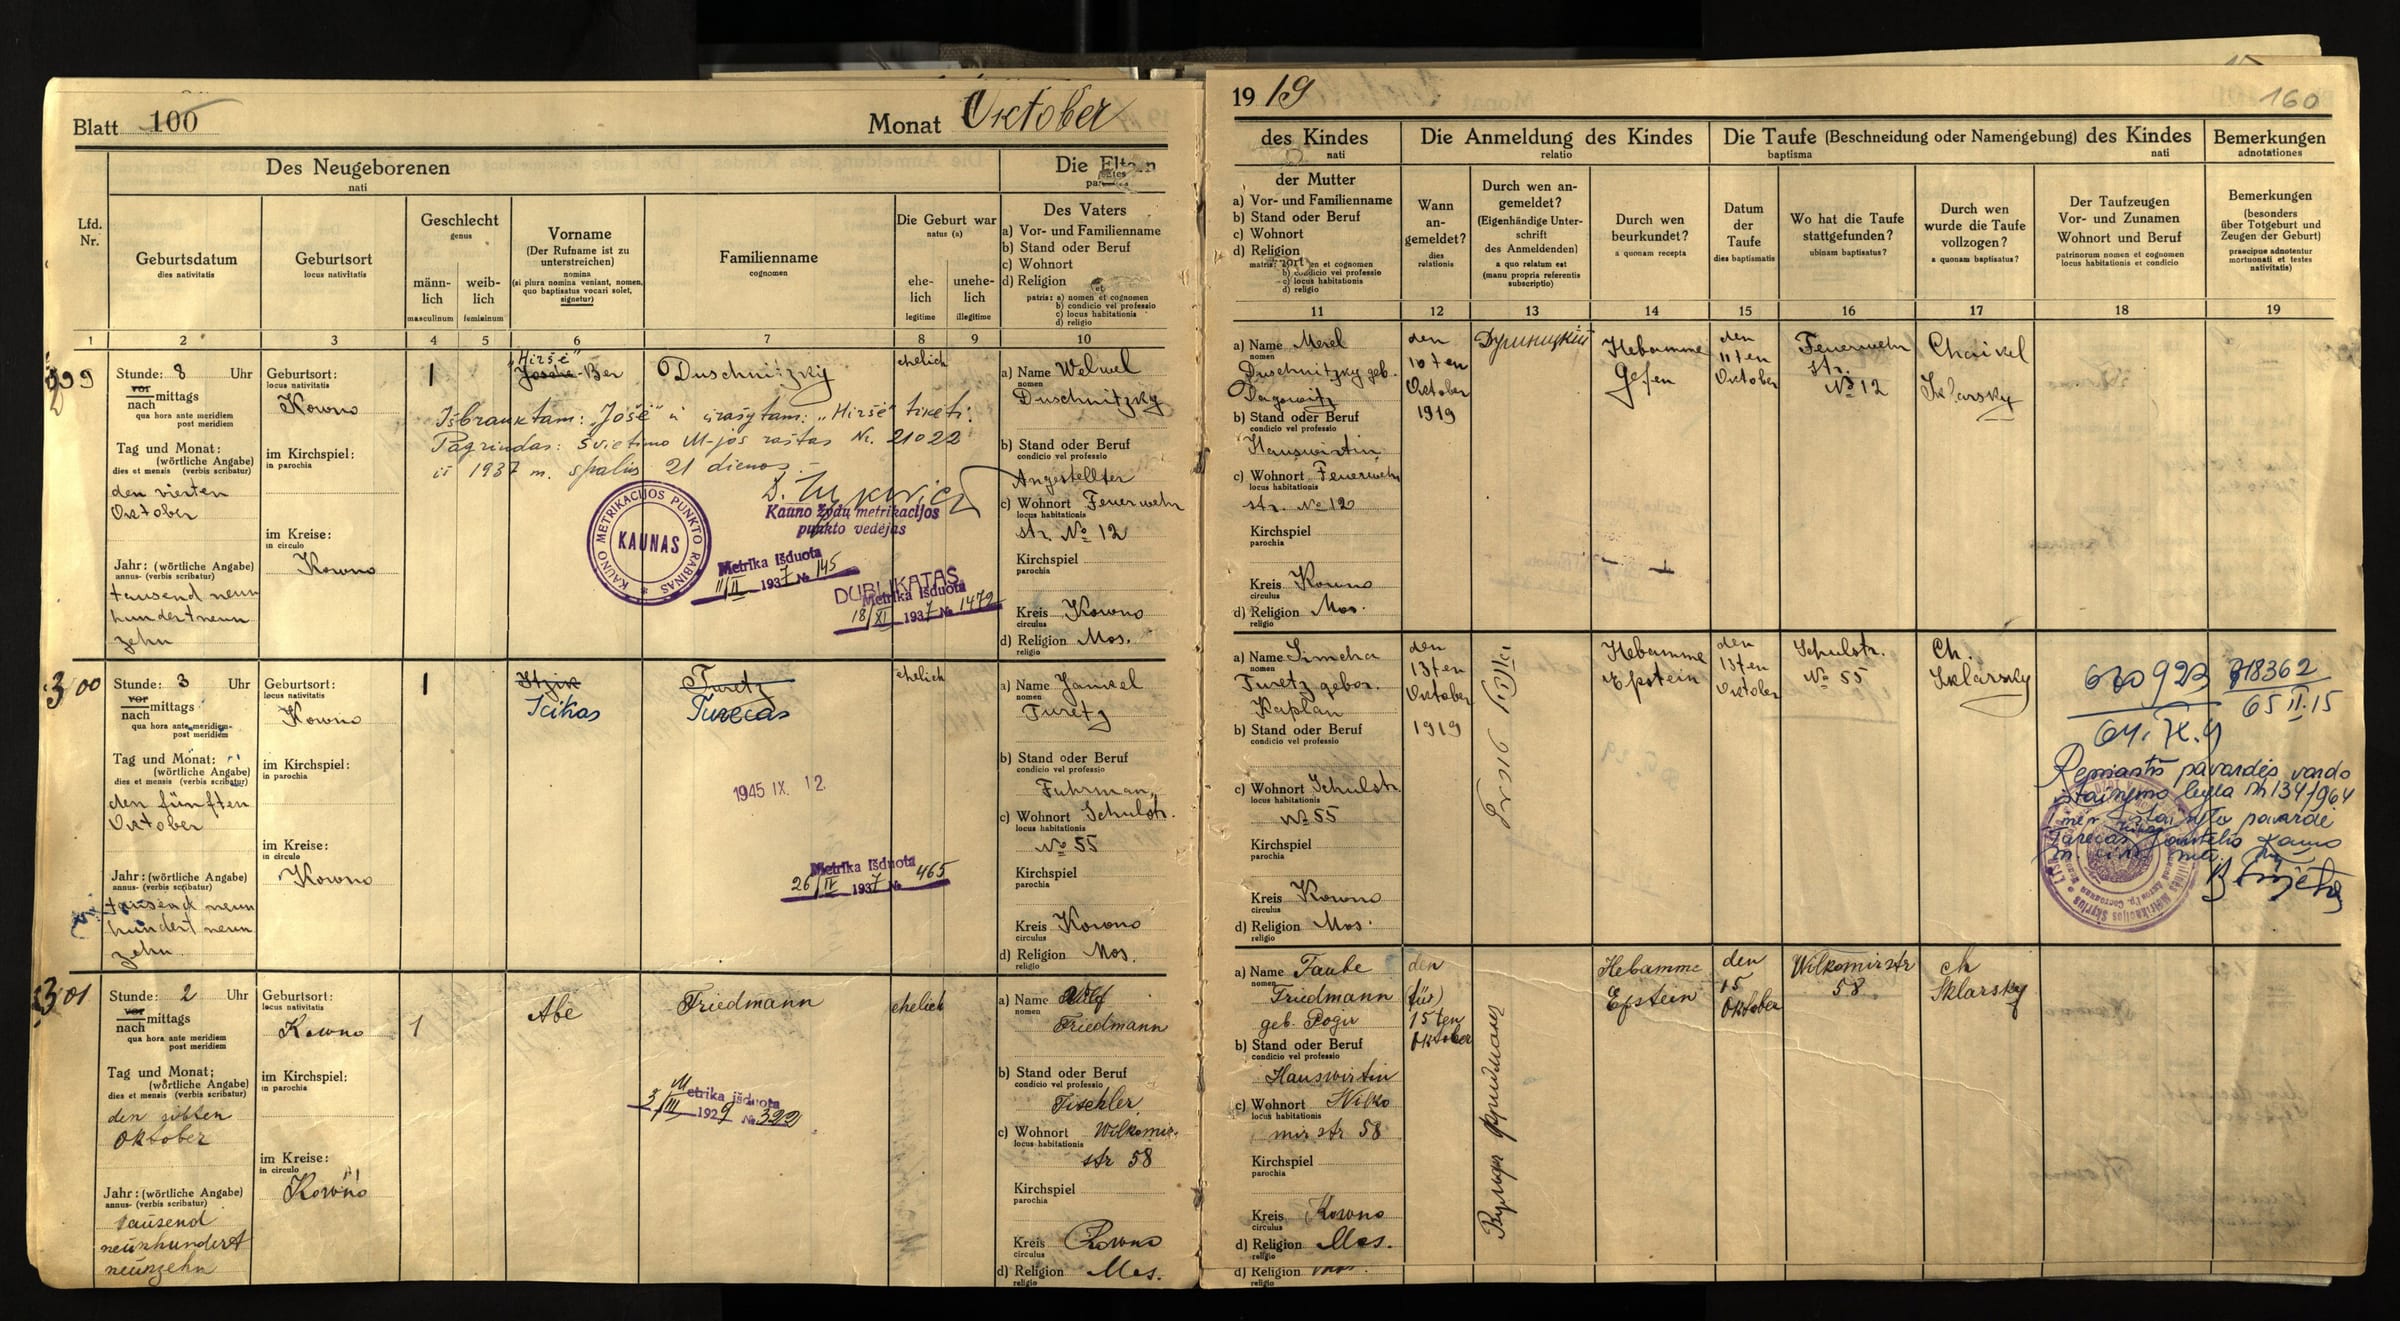 Blatt 100
Monat Oktober
Des Neugeborenen
nati
Die Eltern
Lfd.
Nr.
Geburtsdatum
dies nativitatis
Geburtsort
locus nativitatis
Geschlecht
genus
männ-
lich
masculinum
weib-
lich
femininum
Vorname
(Der Rufname ist zu
unterstreichen)
nomina
(si plura nomina veniant, nomen,
quo baptisatus vocari solet,
signetur)
Familienname
cognomen
Die Geburt war
natus (a)
ehe-
lich
legitime
unehe-
lich
illegitime
Des Vaters
a) Vor- und Familienname
b) Stand oder Beruf
c) Wohnort
d) Religion
patris: a) nomen et cognomen
b) condicio vel professio
c) locus habitationis
d) religio
1 2 3 4 5 6 7 8 9 10
Stunde: 8 Uhr
vor
nach mittags
qua hora ante meridiem
post meridiem
Tag und Monat:
(wörtliche Angabe)
dies et mensis (verbis scribatur)
den vierten
Oktober
Jahr: (wörtliche Angabe)
annus- (verbis scribatur)
tausend neun
hundert neun
zehn
Geburtsort:
locus nativitatis
Kowno
im Kirchspiel:
in parochia
im Kreise:
in circulo
Kowno
1
"Hiršė"
Josche-Ber
Duschnitzky
ehelich
Išbrauktam: "Jošė" ir įrašytam: "Hiršė" tikėti.
Pagrindas: Švietimo M-jos raštas Nr. 21022
iš 1937 m. spalių 21 dienos.-
Kauno žydų metrikacijos
punkto vedėjas
KAUNO METRIKACIJOS PUNKTO RABINAS
KAUNAS
Metrika Išduota
11/II 1937 № 145
DUBLIKATAS
Metrika Išduota
18/XI 1937 № 1472
a) Name Welwel
nomen
Duschnitzky
b) Stand oder Beruf
condicio vel professio
Angestellter
c) Wohnort Feuerwehr
locus habitationis
str. № 12
Kirchspiel
parochia
Kreis Kowno
circulus
d) Religion Mos.
religio
300
Stunde: 3 Uhr
vor
nach mittags
qua hora ante meridiem-
post meridiem
Tag und Monat:
(wörtliche Angabe)
dies et mensis (verbis scribatur)
den fünften
Oktober
Jahr: (wörtliche Angabe)
annus- (verbis scribatur)
tausend neun
hundert neun
zehn
Geburtsort:
locus nativitatis
Kowno
im Kirchspiel:
in parochia
im Kreise:
in circulo
Kowno
1
Itzik
Icikas
Turetz
Turecas
ehelich
1945 IX. 12.
Metrika Išduota
26/IV 1937 № 465
a) Name Jankel
nomen
Turetz
b) Stand oder Beruf
condicio vel professio
Fuhrman
c) Wohnort Schulstr.
locus habitationis
№ 55
Kirchspiel
parochia
Kreis Kowno
circulus
d) Religion Mos.
religio
301
Stunde: 2 Uhr
vor
nach mittags
qua hora ante meridiem
post meridiem
Tag und Monat:
(wörtliche Angabe)
dies et mensis (verbis scribatur)
den sibten
Oktober
Jahr: (wörtliche Angabe)
annus- (verbis scribatur)
tausend
neunhundert
neunzehn
Geburtsort:
locus nativitatis
Kowno
im Kirchspiel:
in parochia
im Kreise:
in circulo
Kowno
1
Abe
Friedmann
ehelich
Metrika išduota
3/III 1929 № 322
a) Name Wolf
nomen
Friedmann
b) Stand oder Beruf
condicio vel professio
Tischler
c) Wohnort Wilkomir-
locus habitationis
str 58
Kirchspiel
parochia
Kreis Kowno
circulus
d) Religion Mos.
religio
1919
160
des Kindes
nati
Die Anmeldung des Kindes
relatio
Die Taufe (Beschneidung oder Namengebung) des Kindes
baptisma nati
Bemerkungen
adnotationes
der Mutter
a) Vor- und Familienname
b) Stand oder Beruf
c) Wohnort
d) Religion
b) condicio vel professio
c) locus habitationis
d) religio
Wann
an-
gemeldet?
dies
relationis
Durch wen an-
gemeldet?
(Eigenhändige Unter-
schrift
des Anmeldenden)
a quo relatum est
(manu propria referentis
subscriptio)
Durch wen
beurkundet?
a quonam recepta
Datum
der
Taufe
dies baptismatis
Wo hat die Taufe
stattgefunden?
ubinam baptisatus?
Durch wen
wurde die Taufe
vollzogen?
a quonam baptisatus?
Der Taufzeugen
Vor- und Zunamen
Wohnort und Beruf
patrinorum nomen et cognomen
locus habitationis et condicio
Bemerkungen
(besonders
über Totgeburt und
Zeugen der Geburt)
praecipue adnotentur
mortuonati et testes
nativitatis)
11 12 13 14 15 16 17 18 19
a) Name Merel
nomen
Duschnitzky geb.
b) Stand oder Beruf
condicio vel professio
Hauswirtin
c) Wohnort Feuerwehr
locus habitationis
str. № 12
Kirchspiel
parochia
Kreis Kowno
circulus
d) Religion Mos.
religio
den
10ten
Oktober
1919
Душницкій
Hebamme
Gefen
den
11ten
Oktober
Feuerwehr
str.
№ 12
Chaikel
Sklarsky
a) Name Simcha
nomen
Turetz gebor.
Kaplan
b) Stand oder Beruf
condicio vel professio
c) Wohnort Schulstr.
locus habitationis
№ 55
Kirchspiel
parochia
Kreis Kowno
circulus
d) Religion Mos.
religio
den
13ten
Oktober
1919
Hebamme
Epstein
den
13ten
Oktober
Schulstr.
№ 55
Ch.
Sklarsky
718362
65 II.15
Remiantis pavardės vardo
a) Name Taube
nomen
Friedmann
geb. Pogir
b) Stand oder Beruf
condicio vel professio
Hauswirtin
c) Wohnort Wilko
locus habitationis
mir str 58
Kirchspiel
parochia
Kreis Kowno
circulus
d) Religion Mos.
religio
d) Religion
religio
den
15ten
Oktober
Фридманъ
Hebamme
Epstein
den
15
Oktober
Wilkomirstr
58
Ch
Sklarsky